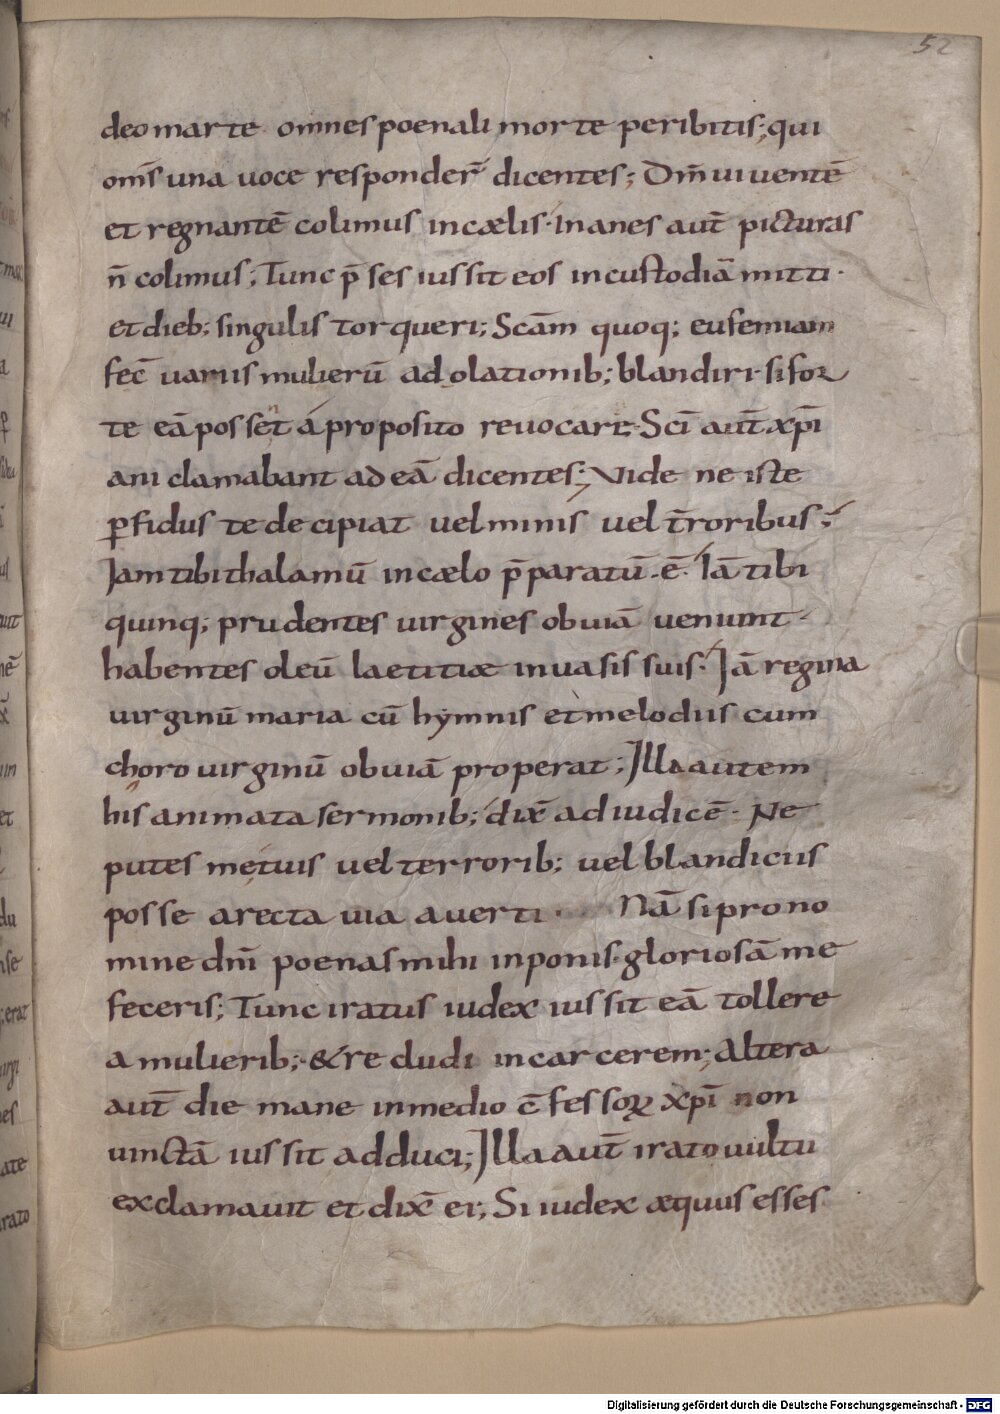 52
deo marte omnes poenali morte peribitis; qui
om̄s una uoce responder̄ dicentes; Dm̄ uiuentē
et regnantē colimus incælis· Inanes aut̄ picturas
n̄ colimus; Tunc p̄ses iussit eos incustodiā mitti·
et dieb; singulis torqueri; Scām quoq; eufemiam
fec̄ uariis mulierū adolationib; blandiri· si for
te eā posset á proposito reuocare; Sc̄i aut̄ xp̄i
ani clamabant ad eā dicentes; Vide ne iste
ꝑfidus te decipiat uel minis uel t̄roribus;
Jam tibi thalamū incælo p̄paratū·ē· Iā tibi
quinq; prudentes uirgines obuiā veniunt·
habentes oleū laetitiæ inuasis suis· Jā regina
uirginū maria cū hymnis et melodiis cum
choro uirginū obuiā properat; Illa autem
his animata sermonib; dix̄ ad iudicē· Ne
putes me tuis uel terrorib; uel blandiciis
posse a recta uia auerti· Nā si pro no
mine dn̄i poenas mihi inponis· gloriosā me
feceris; Tunc iratus iudex iussit eā tollere
a mulierib; & recludi incarcerem; Altera
aut̄ die mane inmedio c̄fessoꝝ xp̄i non
uinctā iussit adduci; Illa aut̄ irato uultu
exclamauit et dix̄ ei; Si iudex æquus esses
Digitalisierung gefördert durch die Deutsche Forschungsgemeinschaft - DFG